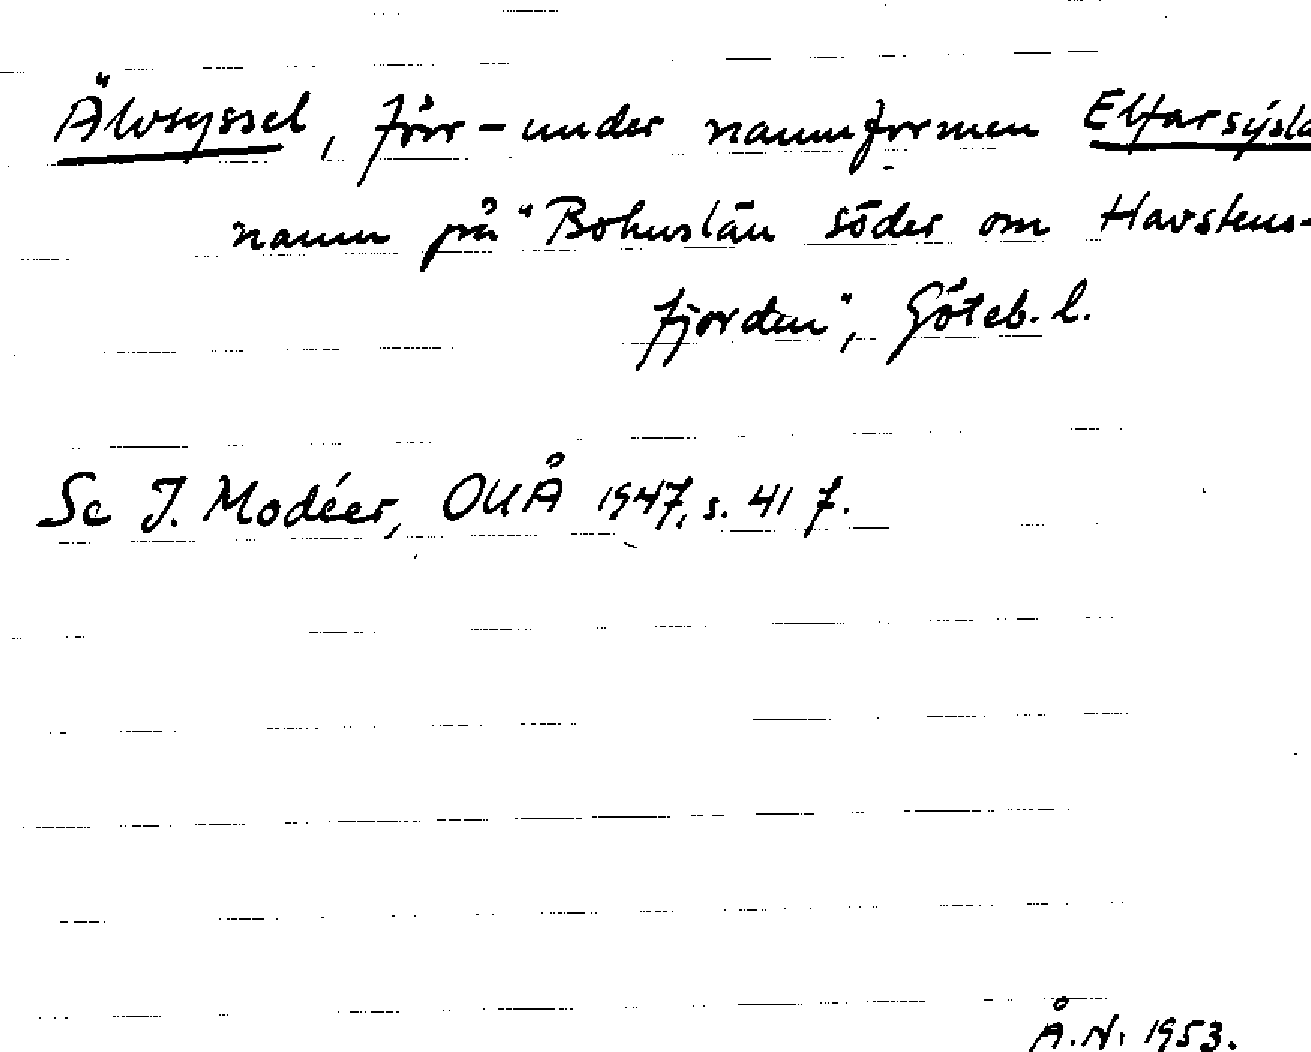 Älvsyssel, förr – under namnformen Elfarsýsla
namn på "Bohuslän söder om Havstens-
fjorden", Göteb. l.
Se J. Modéer, OUÅ 1947, s. 41 f.
Å.N. 1953.